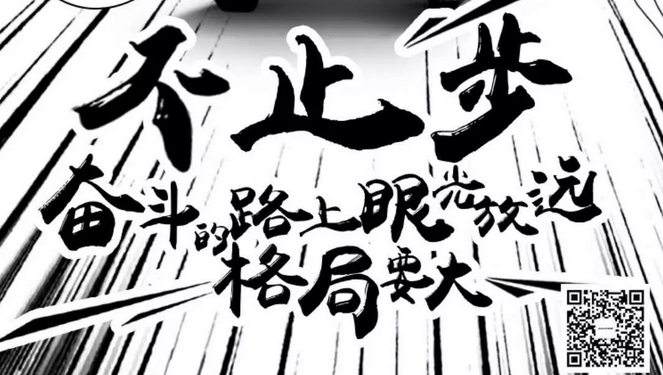 不止步
奋斗的路上眼光放远
格局要大